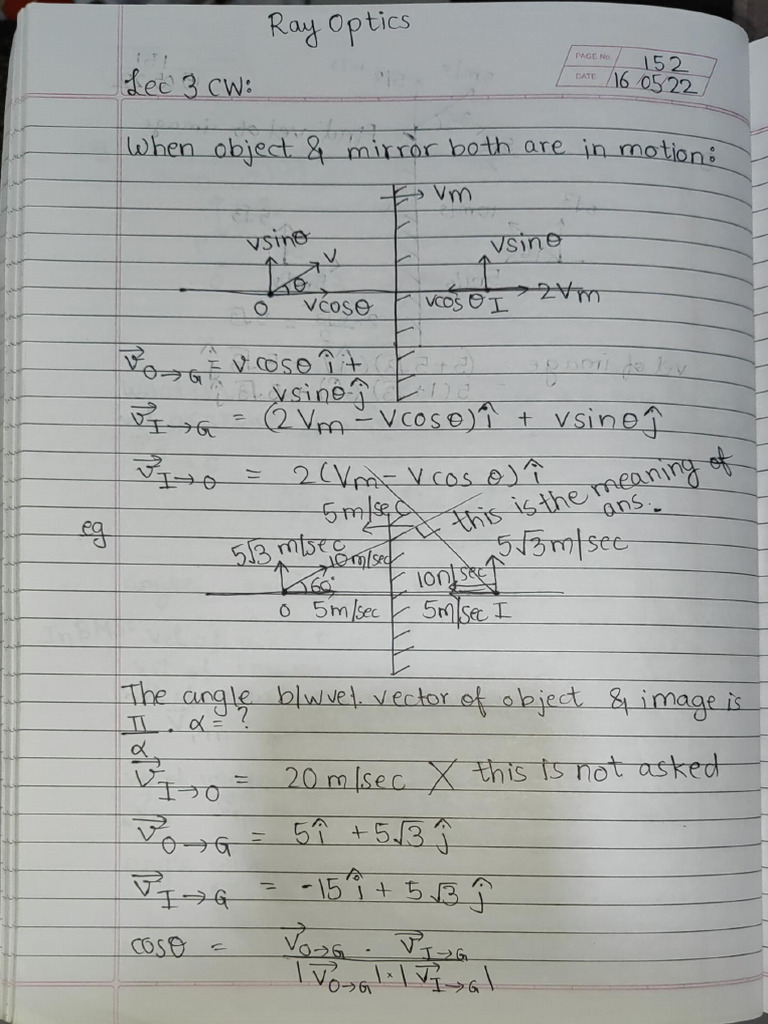 Ray Optics
PAGE No. 152
DATE 16 05 22
Lec 3 CW:
When object & mirror both are in motion:
Vm
vsinθ
v
θ
O vcosθ
vsinθ
vcosθ I 2Vm
v⃗O→G = v cosθ î +
vsinθ ĵ
v⃗I→G = (2Vm – Vcosθ) î + vsinθ ĵ
v⃗I→O = 2(Vm – Vcos θ) î
this is the meaning of
ans.
eg
5m/sec
5√3 m/sec
10m/sec
60°
O 5m/sec
5√3 m/sec
10m/sec
5m/sec I
The angle b/w vel. vector of object & image is
π/α . α = ?
v⃗I→O = 20 m/sec X this is not asked
v⃗O→G = 5î + 5√3 ĵ
v⃗I→G = -15 î + 5√3 ĵ
cosθ = v⃗O→G . v⃗I→G
|v⃗O→G| × |v⃗I→G|